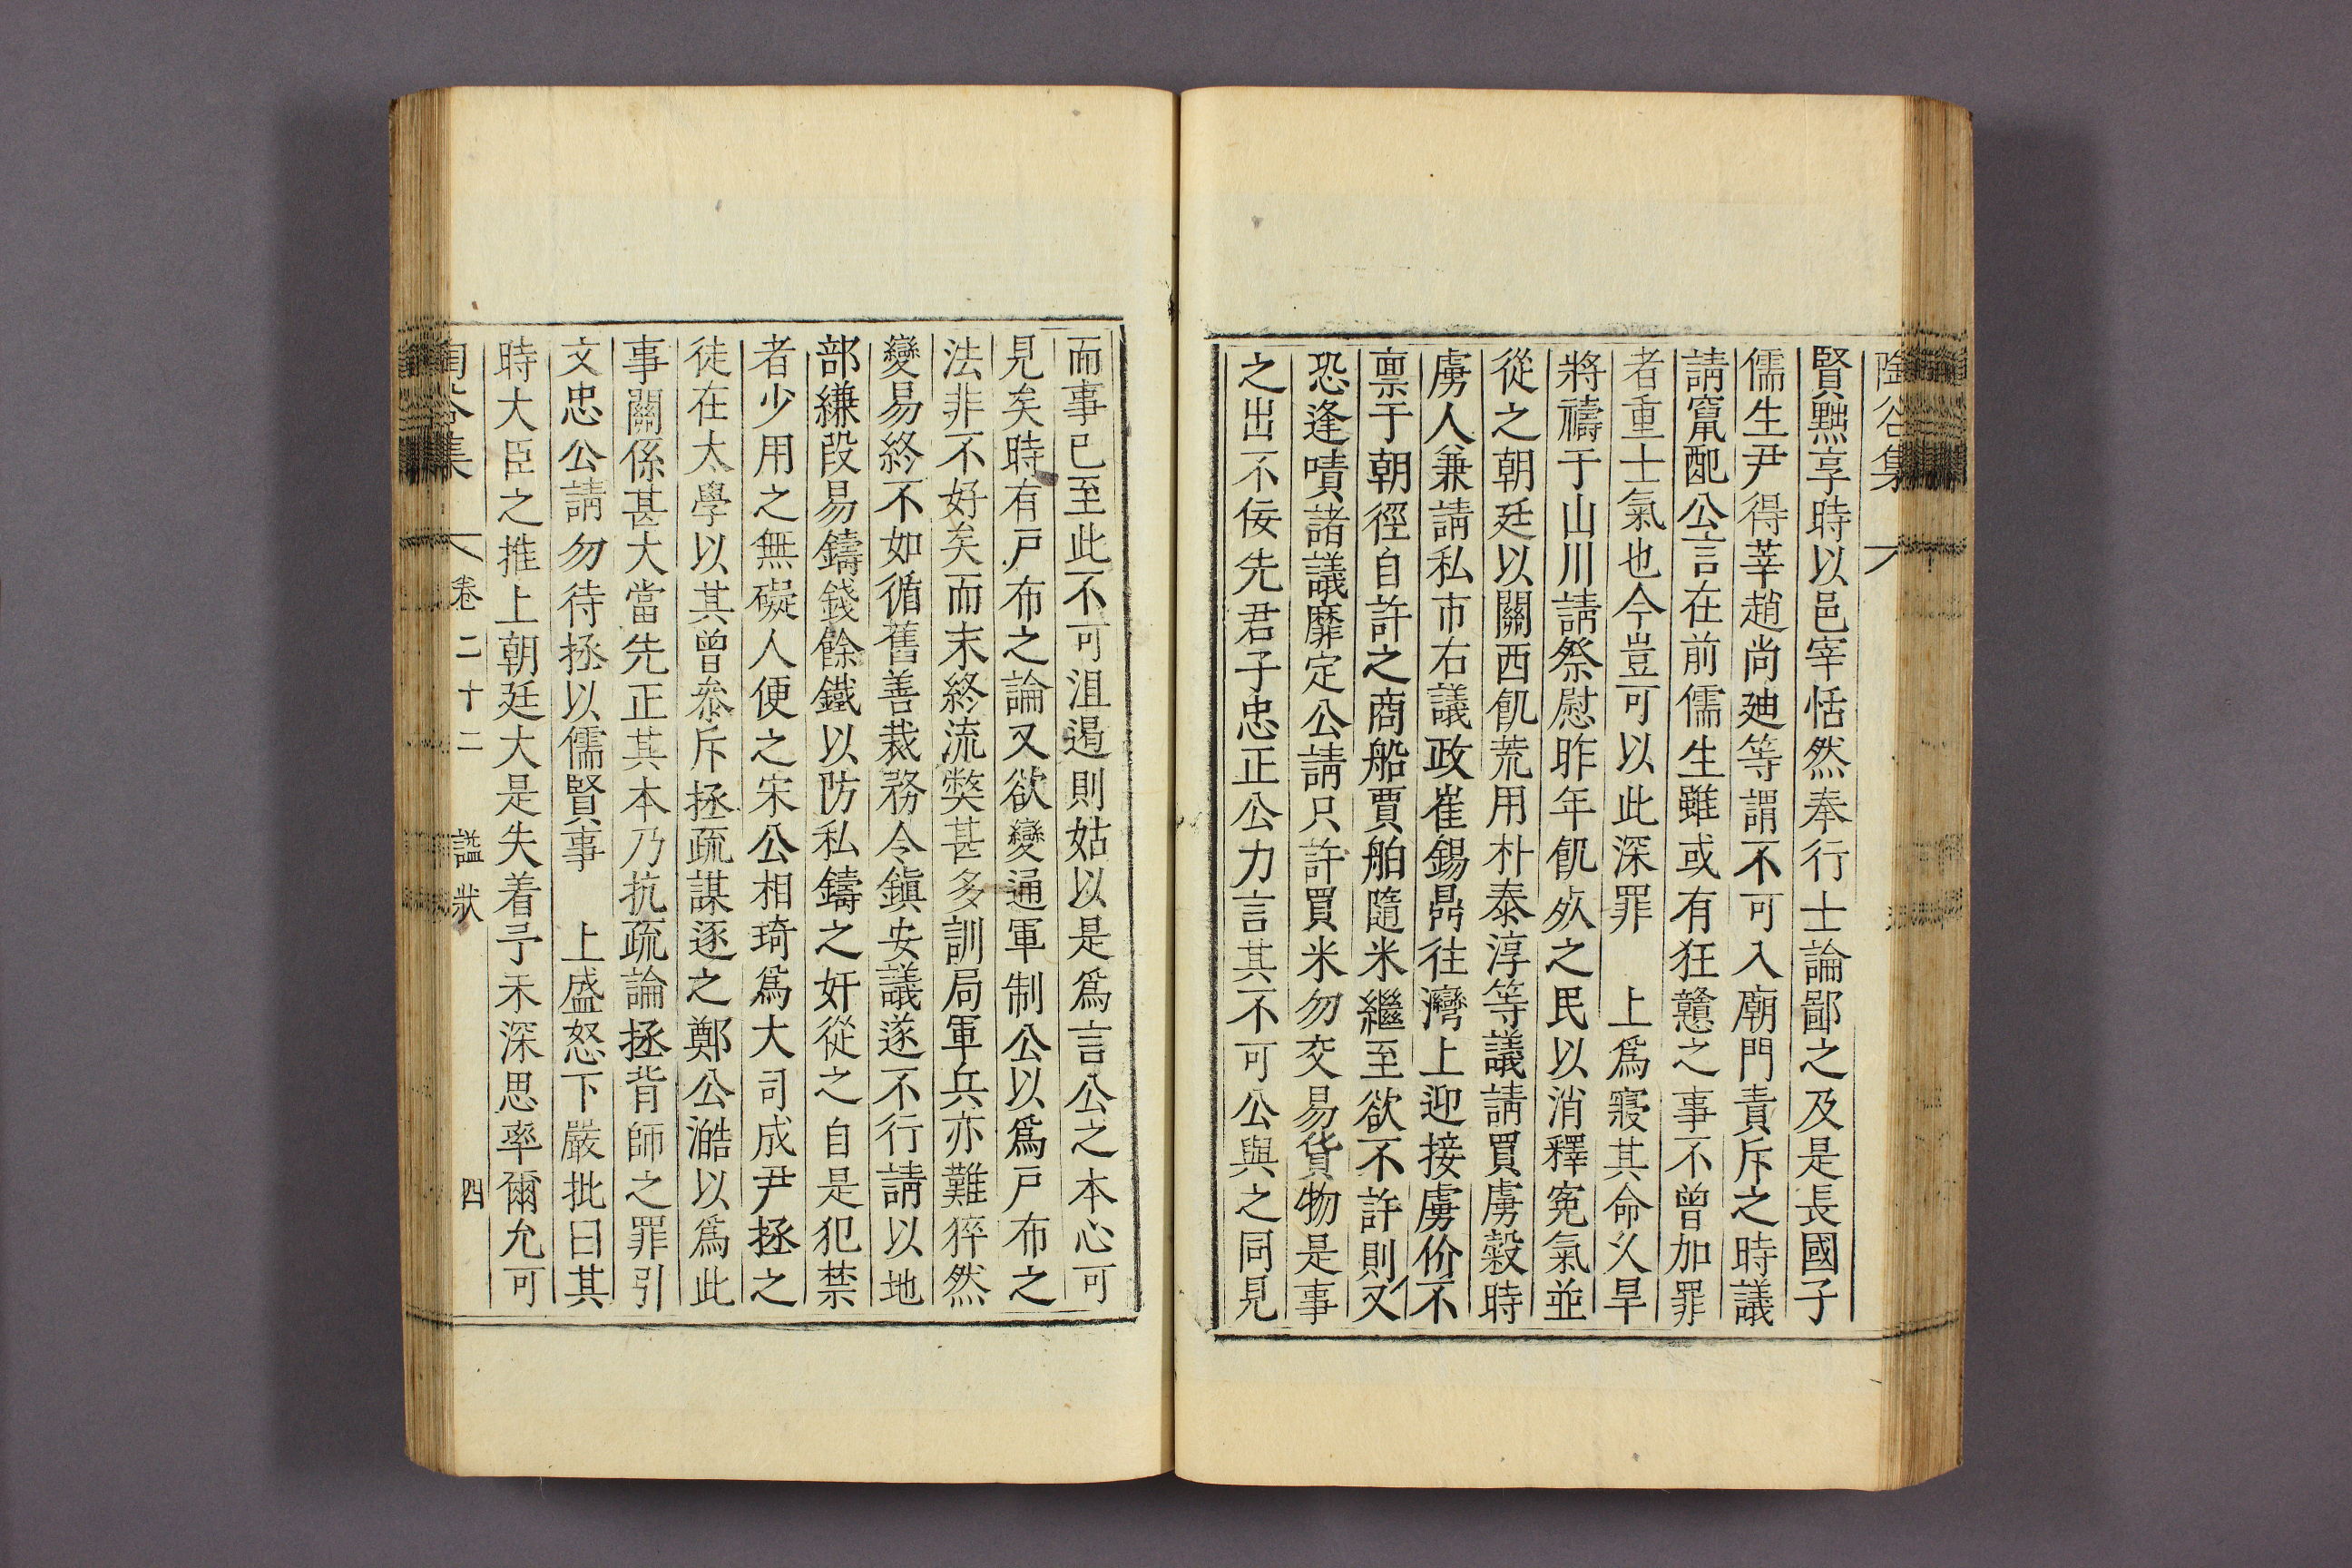 陶谷集
賢黜享時以邑宰恬然奉行士論鄙之及是長國子
儒生尹得莘趙尚廸等謂不可入廟門責斥之時議
請竄配公言在前儒生雖或有狂戇之事不曾加罪
者重士氣也今豈可以此深罪　上爲寢其命久旱
將禱于山川請祭慰昨年飢死之民以消釋寃氣並
從之朝廷以關西飢荒用朴泰淳等議請買虜穀時
虜人兼請私市右議政崔錫鼎往灣上迎接虜价不
禀于朝徑自許之商船賈舶隨米繼至欲不許則又
恐逢嘖諸議靡定公請只許買米勿交易貨物是事
之出不佞先君子忠正公力言其不可公與之同見
而事已至此不可沮遏則姑以是爲言公之本心可
見矣時有戸布之論又欲變通軍制公以爲戸布之
法非不好矣而末終流弊甚多訓局軍兵亦難猝然
變易終不如循舊善裁務令鎭安議遂不行請以地
部縑段易鑄錢餘鐵以防私鑄之奸從之自是犯禁
者少用之無礙人便之宋公相琦爲大司成尹拯之
徒在太學以其曾叅斥拯疏謀逐之鄭公澔以爲此
事關係甚大當先正其本乃抗疏論拯背師之罪引
文忠公請勿待拯以儒賢事　上盛怒下嚴批曰其
時大臣之推上朝廷大是失着予未深思率爾允可
陶谷集　卷二十二　諡狀　四